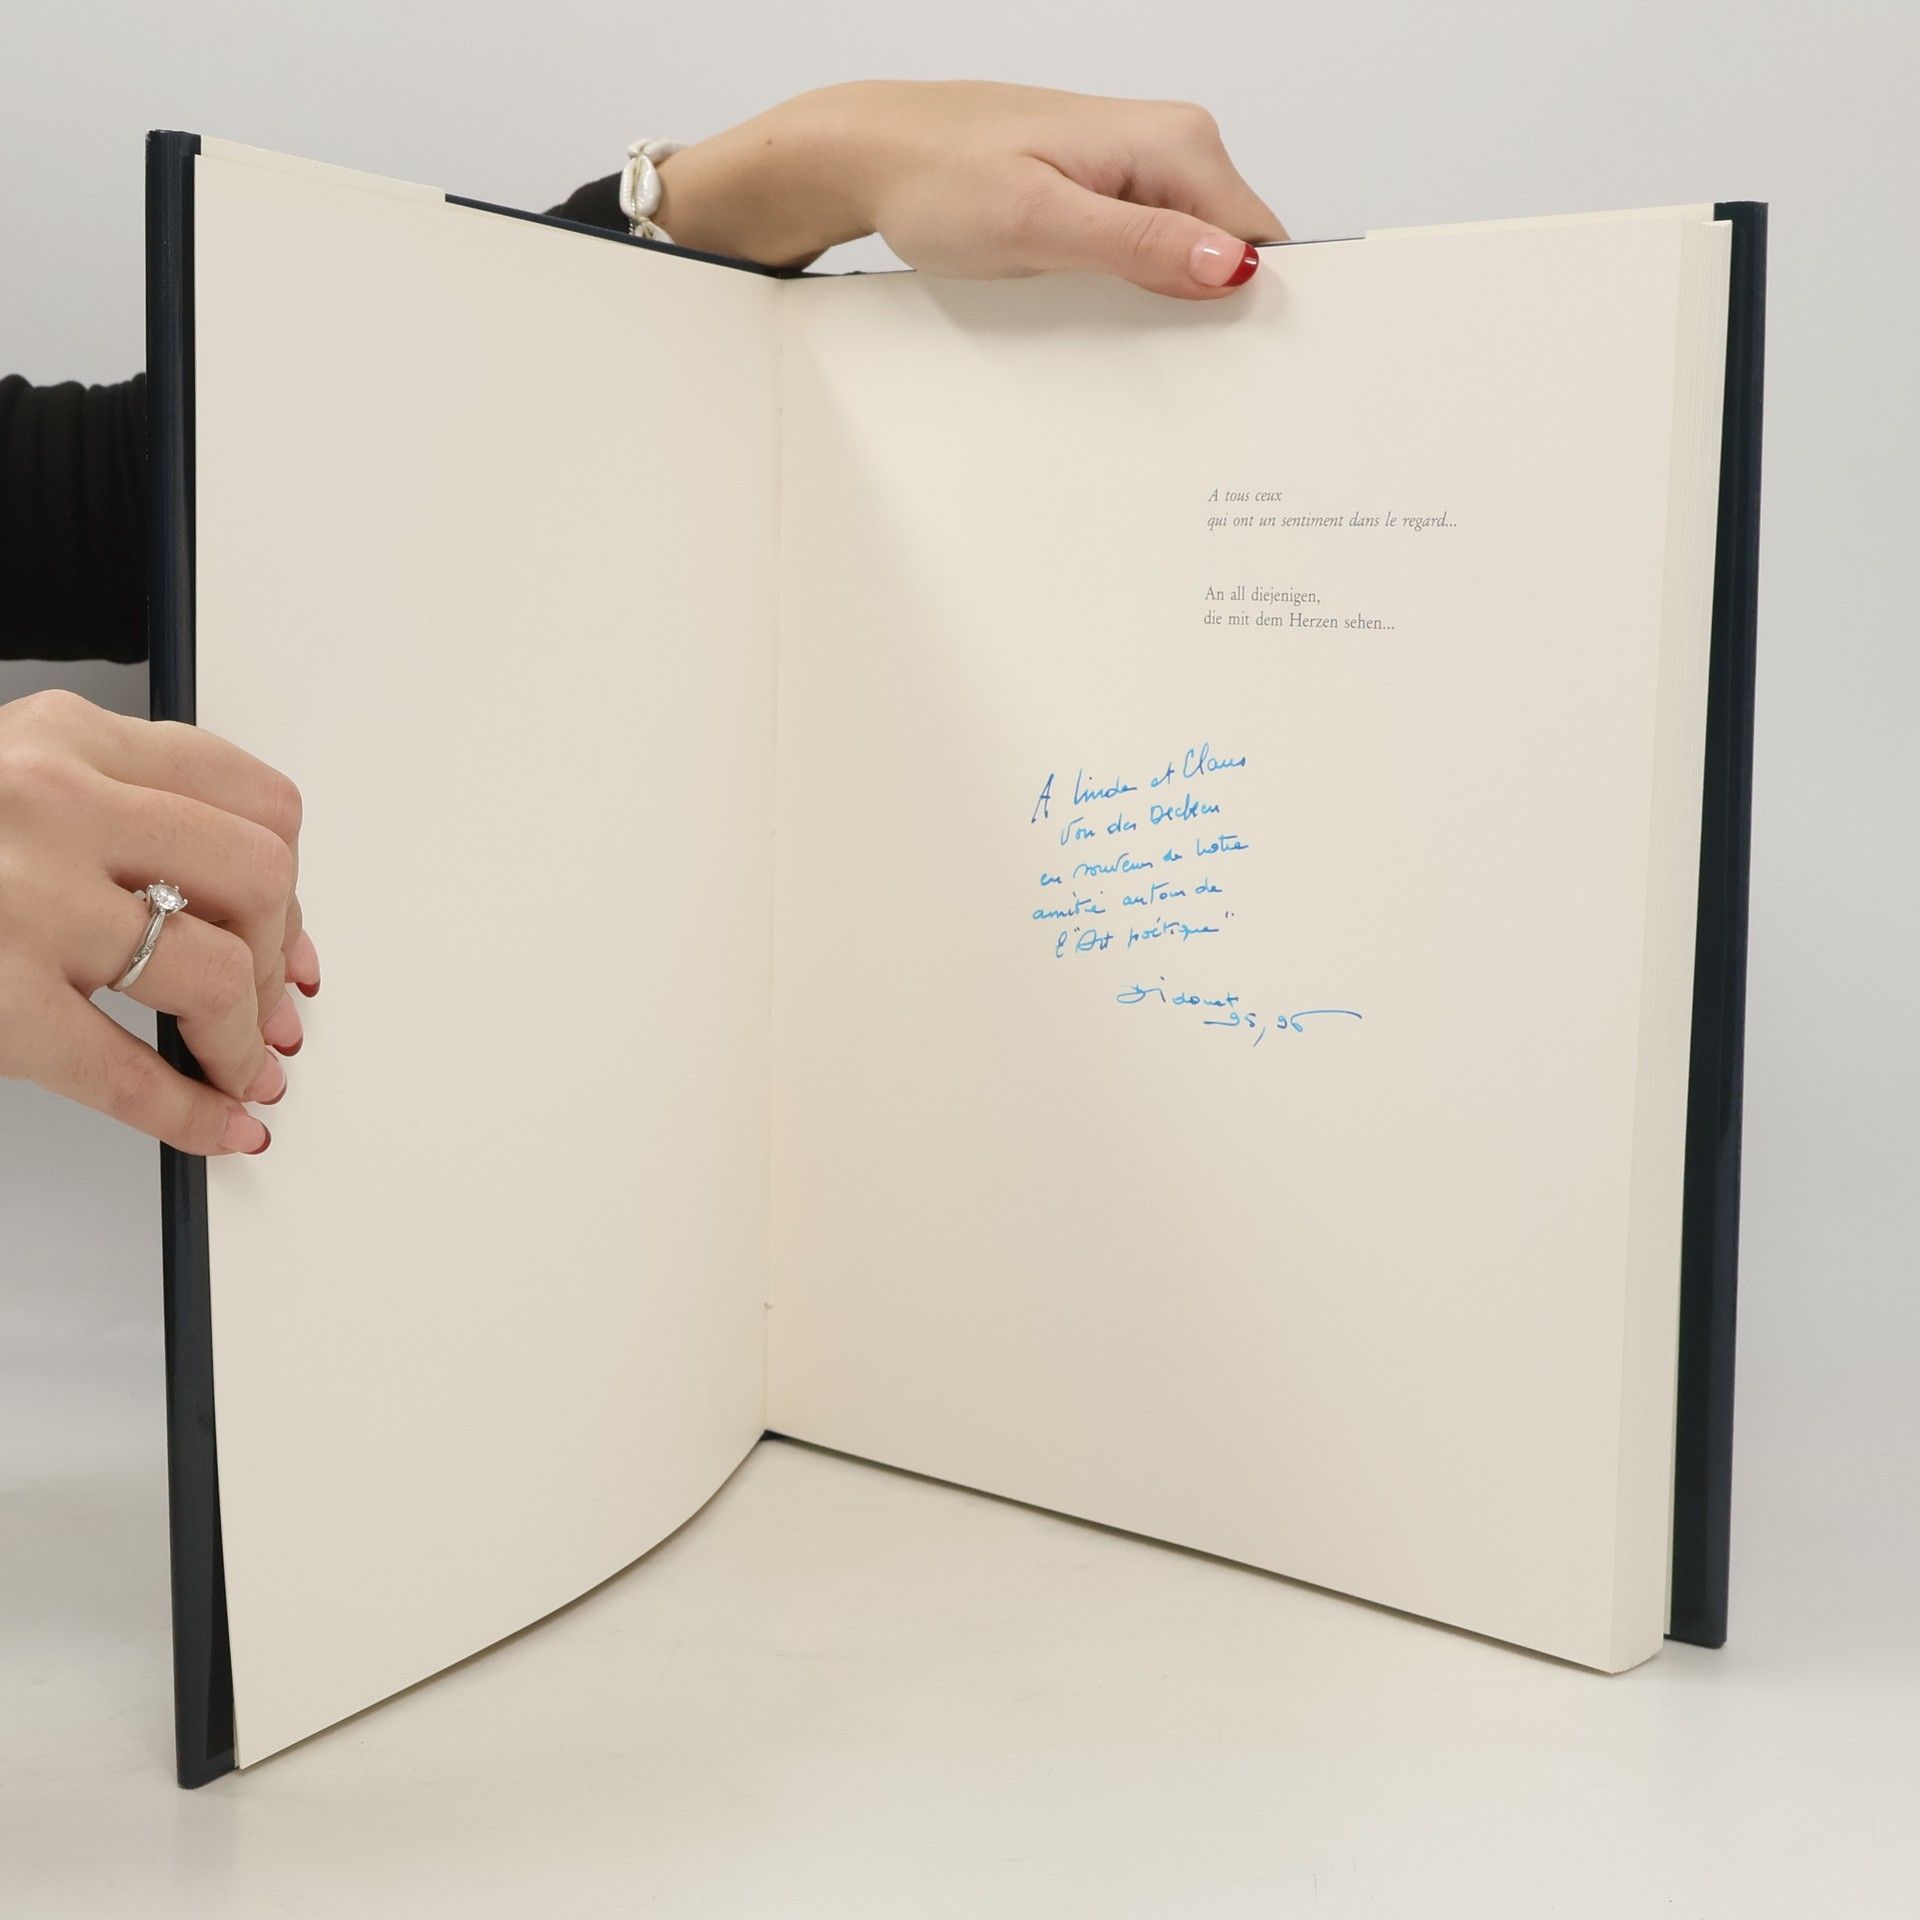 A tous ceux
qui ont un sentiment dans le regard...
An all diejenigen,
die mit dem Herzen sehen...
A Linda et Claus
Von der Decken
en souvenir de notre
amitié autour de
l'"Art poétique"
Didonet
95, 96